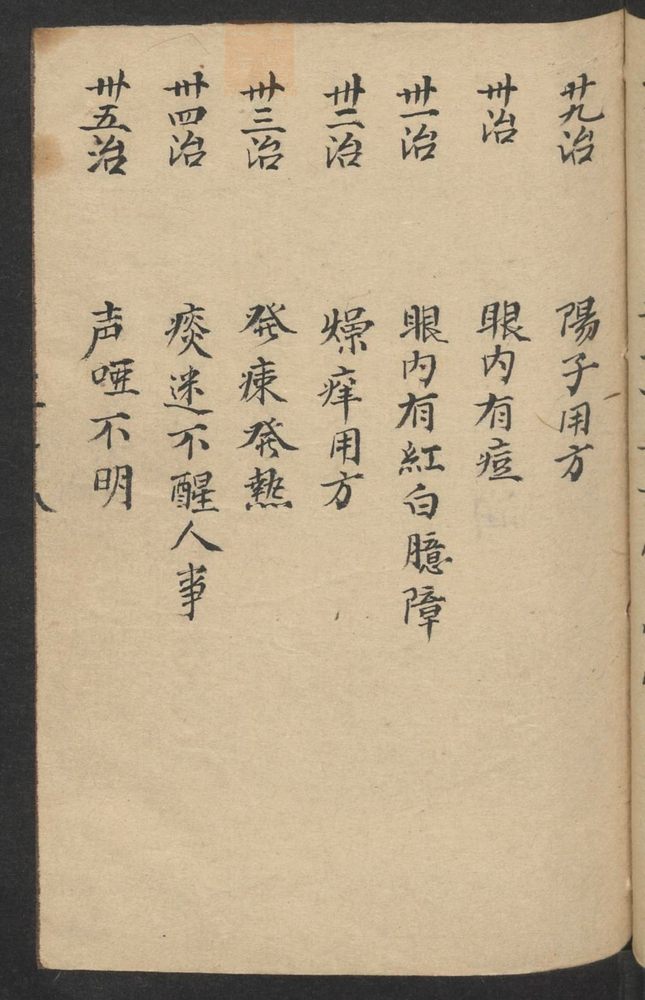 廿九治 陽子用方
卅治 眼内有痘
卅一治 眼内有紅白臆障
卅二治 燥痒用方
卅三治 發㾐發熱
卅四治 痰迷不醒人事
卅五治 声哑不明